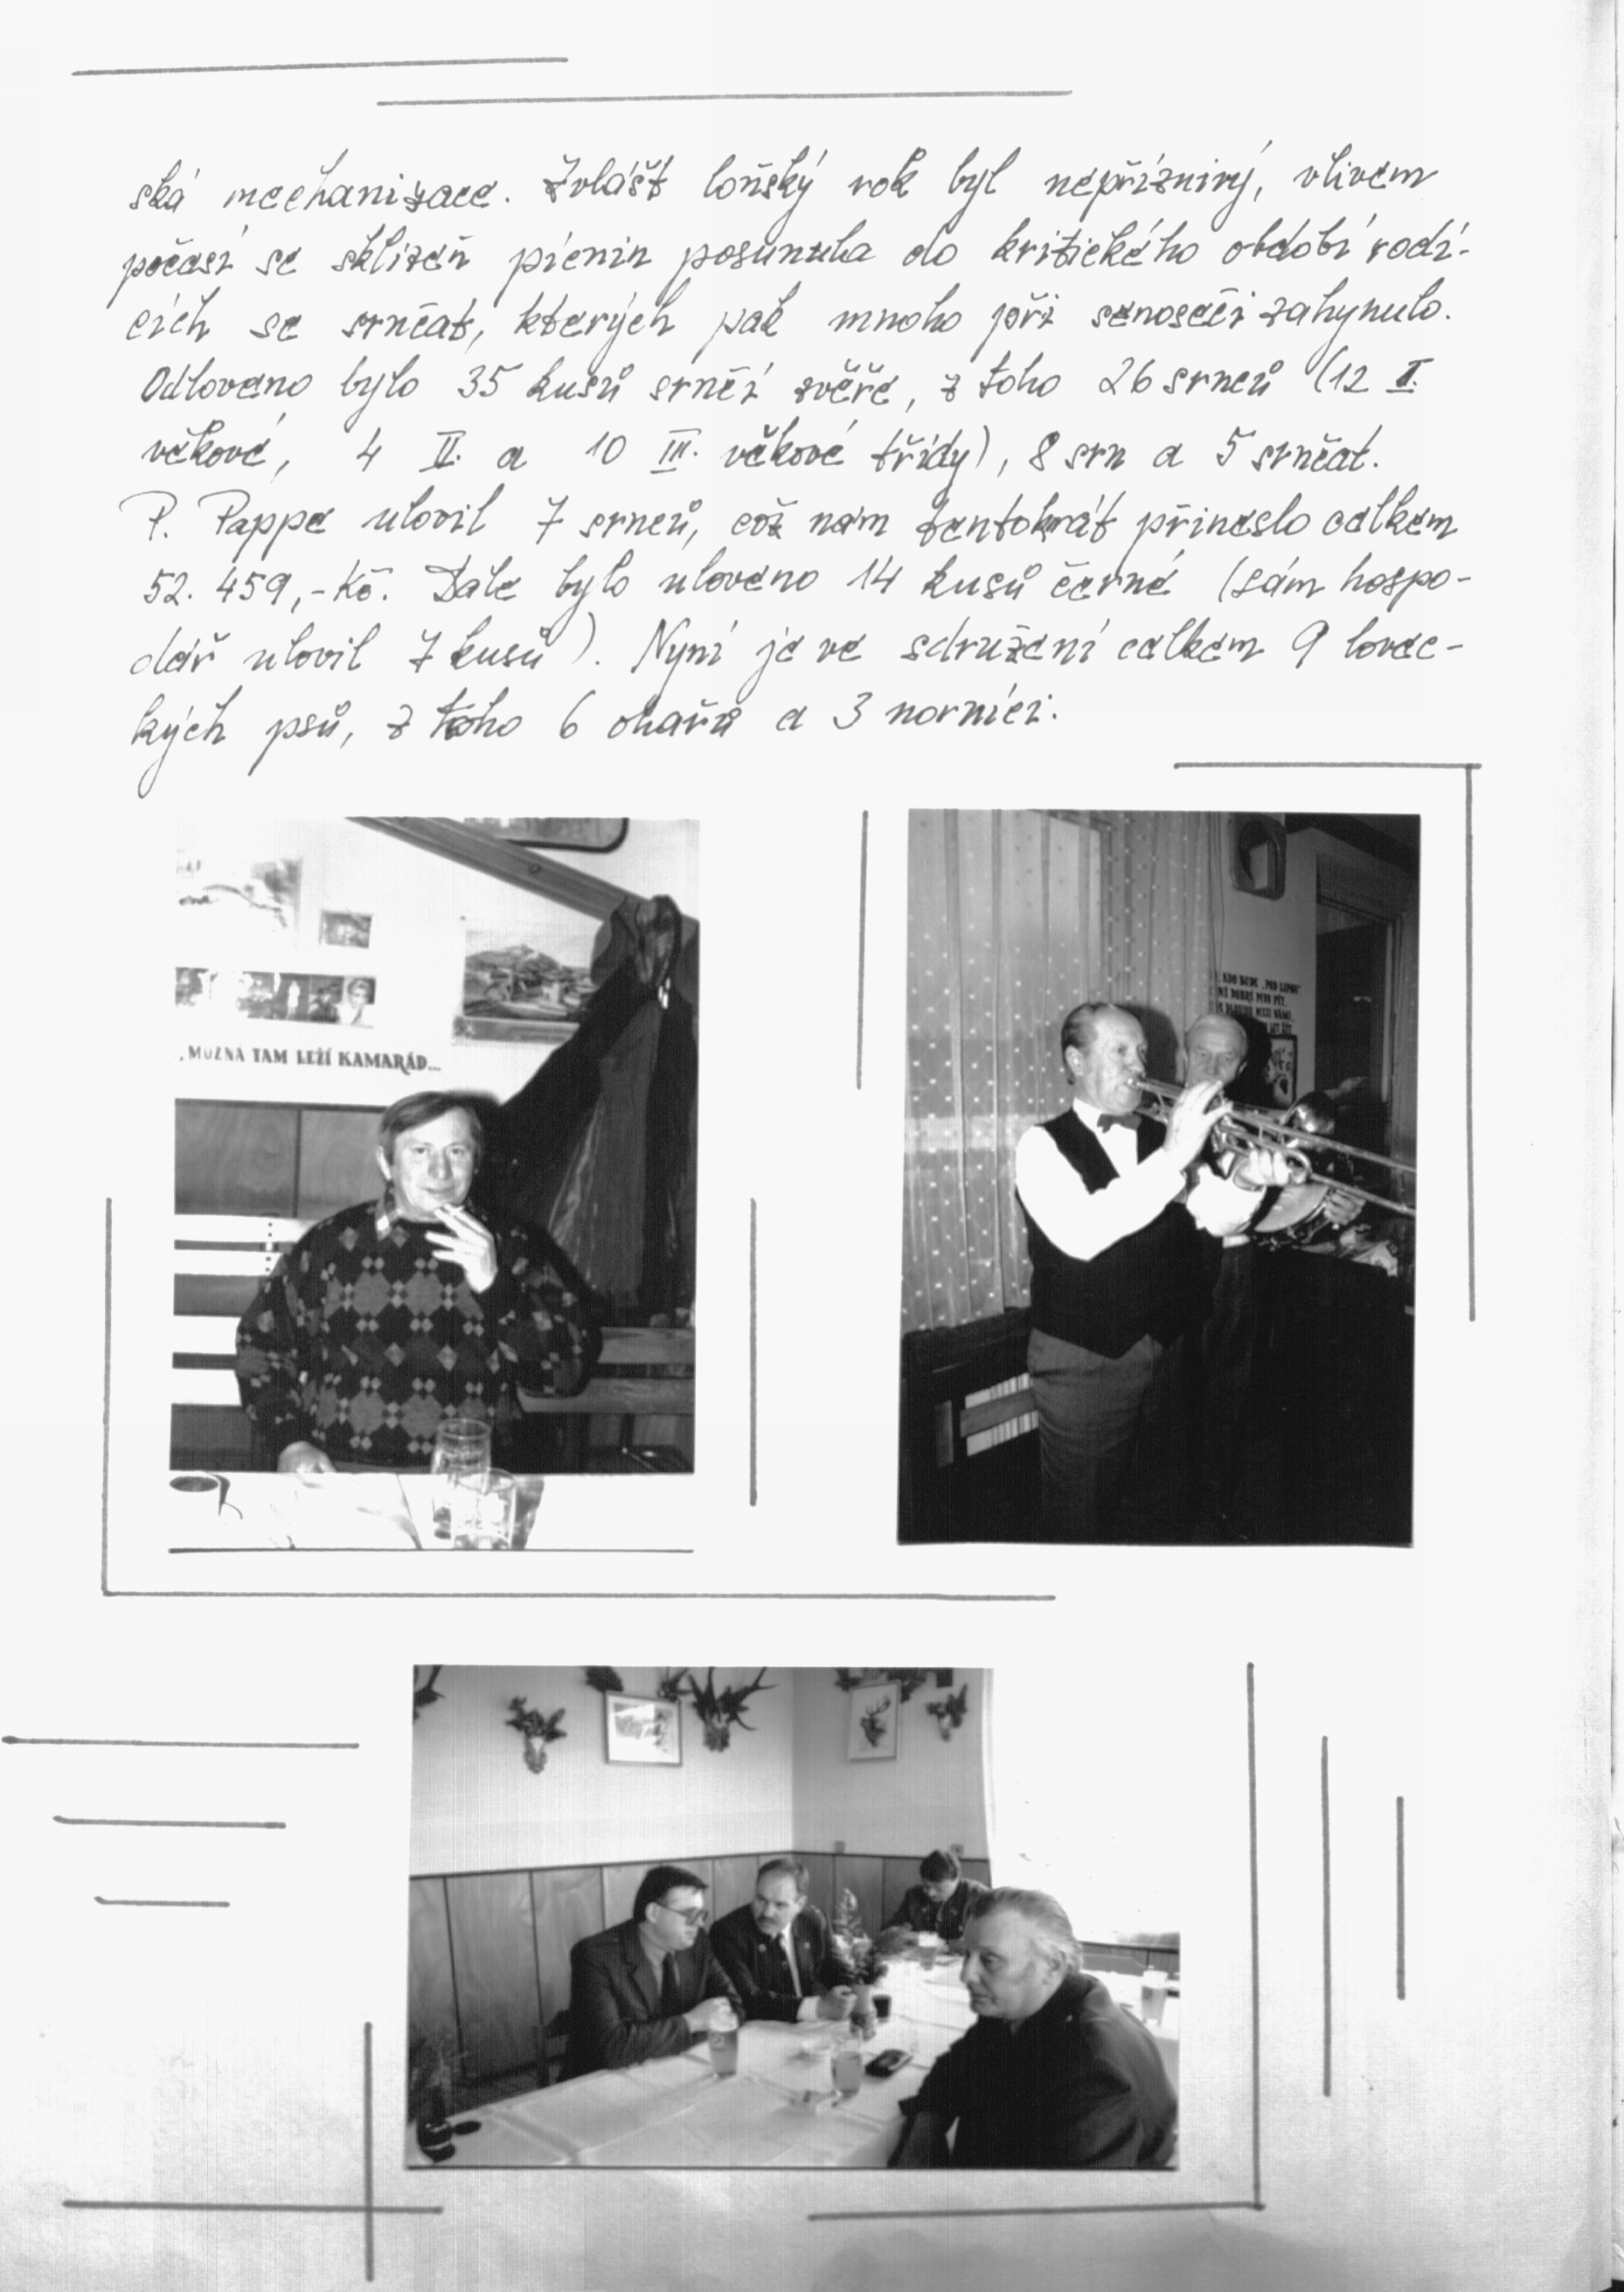 ská mechanizace. Zvlášť loňský rok byl nepříznivý, vlivem
počasí se sklizeň pícnin posunula do kritického období rodí-
cích se srnčat, kterých pak mnoho při senoseči zahynulo.
Odloveno bylo 35 kusů srnčí zvěře, z toho 26 srnců (12 I.
věkové, 4 II. a 10 III. věkové třídy), 8 srn a 5 srnčat.
P. Pappe ulovil 7 srnců, což nám tentokrát přineslo celkem
52.459,- Kč. Dále bylo uloveno 14 kusů černé (sám hospo-
dář ulovil 7 kusů). Nyní je ve sdružení celkem 9 lovec-
kých psů, z toho 6 ohařů a 3 norníci.
„MOŽNÁ TAM LEŽÍ KAMARÁD...
KDO BUDE „POD LIPOU“
DOBRÉ PIVO PÍT,
MEZI NÁMI
LET ŽÍT